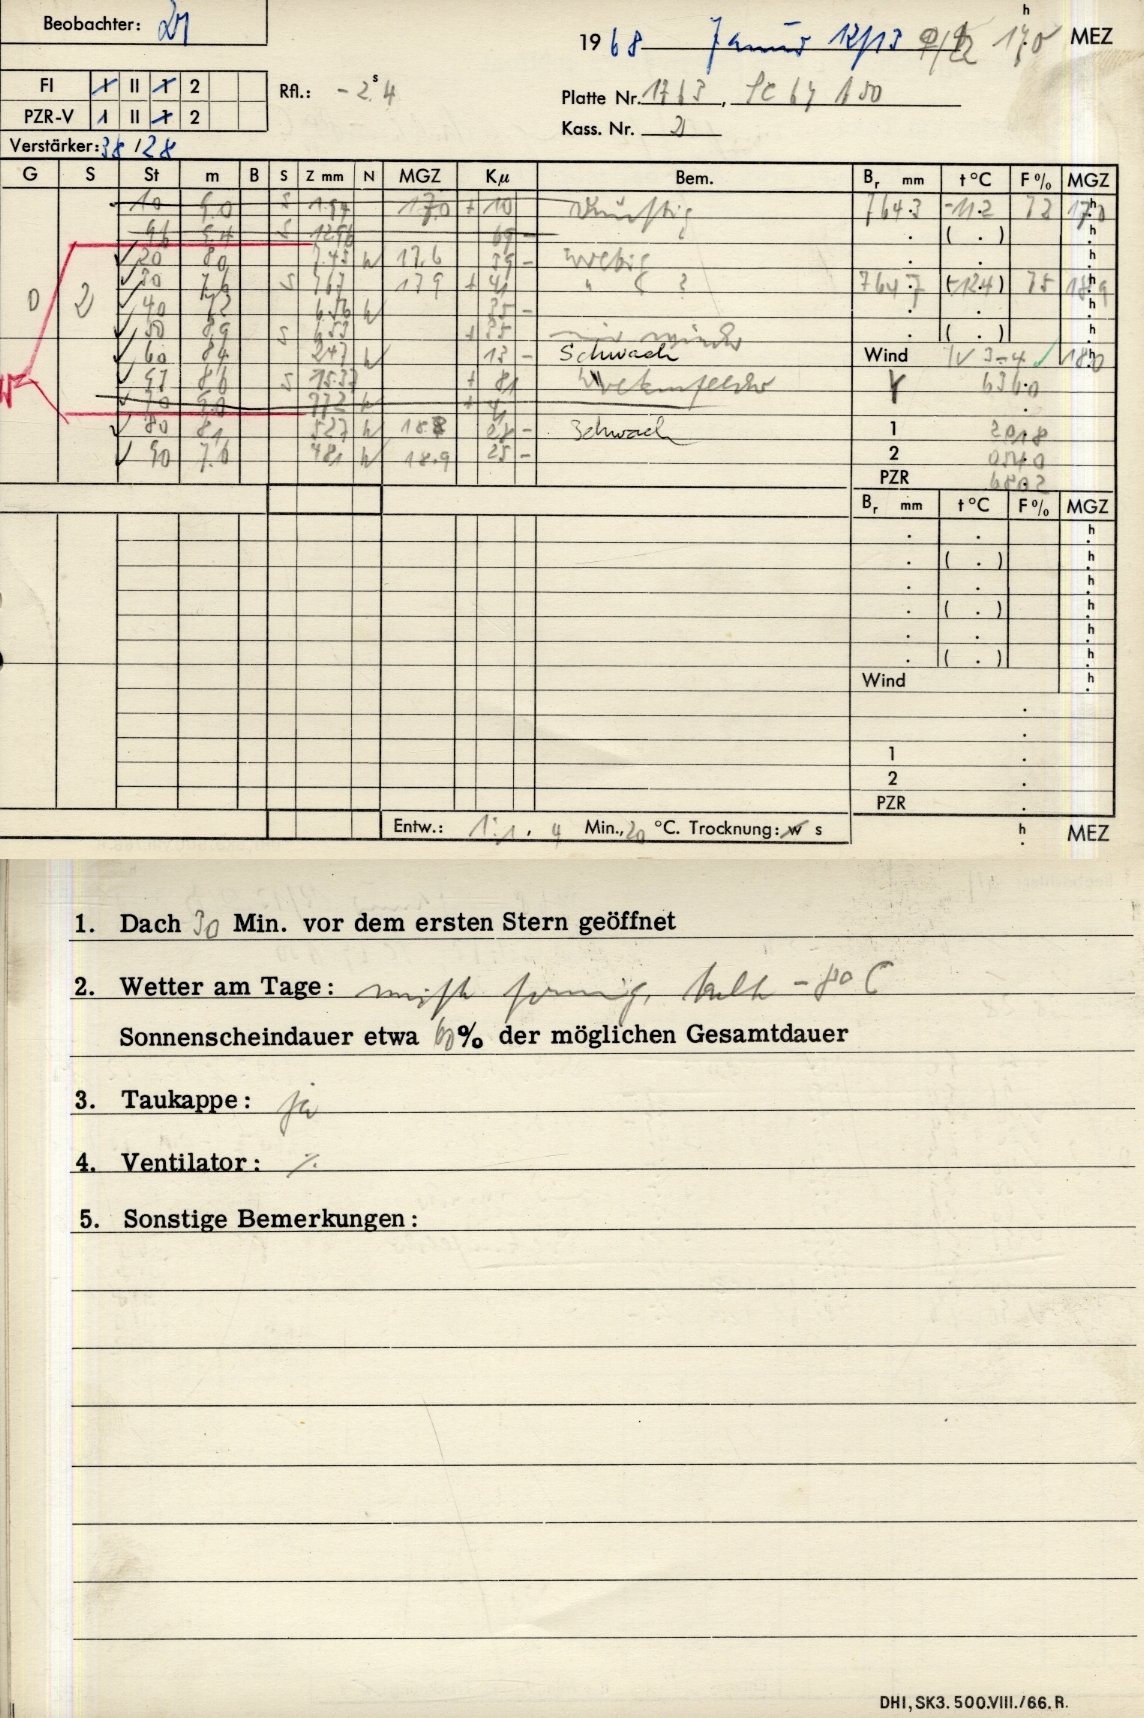 Beobachter:
1968 Januar 12/13 17.0 h MEZ
FI 1 II 1 2
Rfl.: -2.s4
Platte Nr. 1763,
PZR-V 1 II 1 2
Kass. Nr. 2
Verstärker: 38 / 28
G S St m B S Z mm N MGZ Kμ Bem. Br mm t °C F % MGZ
10 9.0 S 1.94 17.0 + 10 dunstig 764.3 -11.2 72 17.0 h
96 9.4 S 12.96 69 - ( . ) h
20 8.0 7.45 N 17.6 39 - . . h
0 2 30 7.6 S 7.67 17.9 + 41 " 764.7 (-12.4) 75 18.9 h
40 N 35 - . . h
50 8.9 S 6.53 + 35 ( . ) h
60 8.4 2.47 N 13 - Schwach Wind W 3-4 18.0 h
W 97 8.6 S 15.37 + 81 γ 636.0
70 9.0 7.72 N + 41
80 8.1 5.27 N 18.8 28 - Schwach 1 201.8
90 7.6 4.81 N 18.9 25 - 2 054.0
PZR 680.2
Br mm t °C F % MGZ
. . h
. ( . ) h
. . h
. ( . ) h
. . h
. ( . ) h
Wind h
1 .
2 .
PZR .
Entw.: 1:1, 4 Min., 20 °C. Trocknung: w s h MEZ
1. Dach 30 Min. vor dem ersten Stern geöffnet
2. Wetter am Tage: meist sonnig, kalt -8° C
Sonnenscheindauer etwa 60% der möglichen Gesamtdauer
3. Taukappe: ja
4. Ventilator: ./.
5. Sonstige Bemerkungen:
DHI, SK3. 500.VIII./66. R.